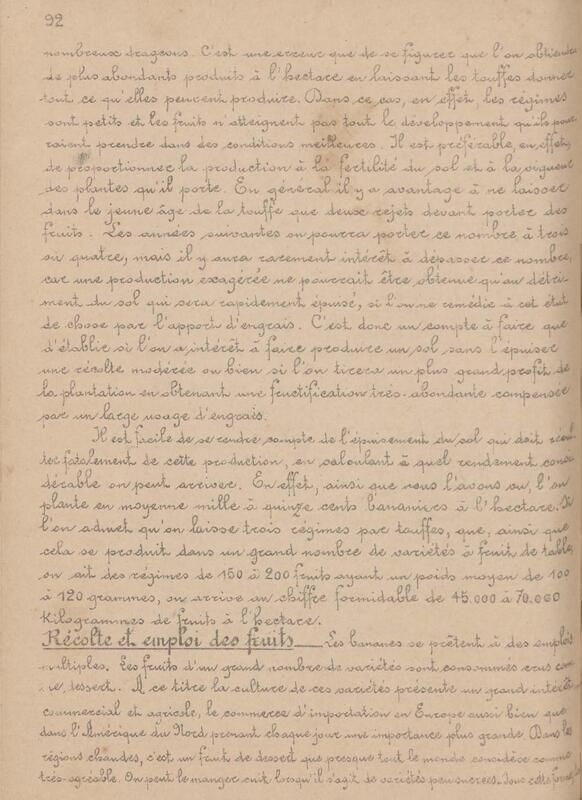 92
nombreux drageons. C'est une erreur que de se figurer que l'on obtiendra
de plus abondants produits à l'hectare en laissant les touffes donner
tout ce qu'elles peuvent produire. Dans ce cas, en effet, les régimes
sont petits et les fruits n'atteignent pas tout le développement qu'ils pour
raient prendre dans des conditions meilleures. Il est préférable, en effet,
de proportionner la production à la fertilité du sol et à la vigueur
des plantes qu'il porte. En général il y a avantage à ne laisser
dans le jeune âge de la touffe que deux rejets devant porter des
fruits. Les années suivantes on pourra porter ce nombre à trois
ou quatre, mais il y aura rarement intérêt à dépasser ce nombre,
car une production exagérée ne pourrait être obtenue qu'au détri-
ment du sol qui sera rapidement épuisé, si l'on ne remédie à cet état
de chose par l'apport d'engrais. C'est donc un compte à faire que
d'établir si l'on a intérêt à faire produire un sol sans l'épuiser
une récolte modérée ou bien si l'on tirera un plus grand profit de
la plantation en obtenant une fructification très-abondante compensée
par un large usage d'engrais.
Il est facile de se rendre compte de l'épuisement du sol qui doit résul
ter fatalement de cette production, en calculant à quel rendement consi
dérable on peut arriver. En effet, ainsi que nous l'avons vu, l'on
plante en moyenne mille à quinze cents bananiers à l'hectare. Si
l'on admet qu'on laisse trois régimes par touffes, que, ainsi que
cela se produit dans un grand nombre de variétés à fruit de table,
on ait des régimes de 150 à 200 fruits ayant un poids moyen de 100
à 120 grammes, on arrive au chiffre formidable de 45.000 à 70.000
Kilogrammes de fruits à l'hectare.
Récolte et emploi des fruits Les bananes se prêtent à des emplois
multiples. Les fruits d'un grand nombre de variétés sont consommés crus com
me, dessert. A ce titre la culture de ces variétés présente un grand intérêt
commercial et agricole, le commerce d'importation en Europe aussi bien que
dans l'Amérique du Nord prenant chaque jour une importance plus grande. Dans les
régions chaudes, c'est un fruit de dessert que presque tout le monde considère comme
très-agréable. On peut le manger cuit lorsqu'il s'agit de variétés peu sucrées. Sous cette forme